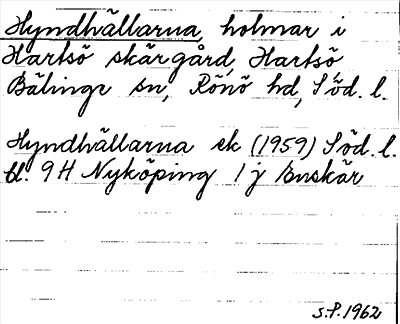 Hyndhällarna, holmar i
Hartsö skärgård, Hartsö
Bälinge sn, Rönö hd, Söd. l.
Hyndhällarna ek (1959) Söd. l.
bl. 9H Nyköping 1j Enskär
S.P. 1962